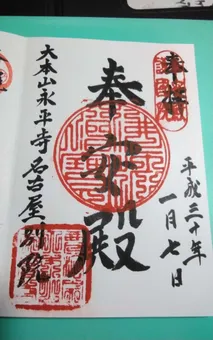 奉拝
平成三十年
一月七日
奉安殿
大本山永平寺名古屋別院